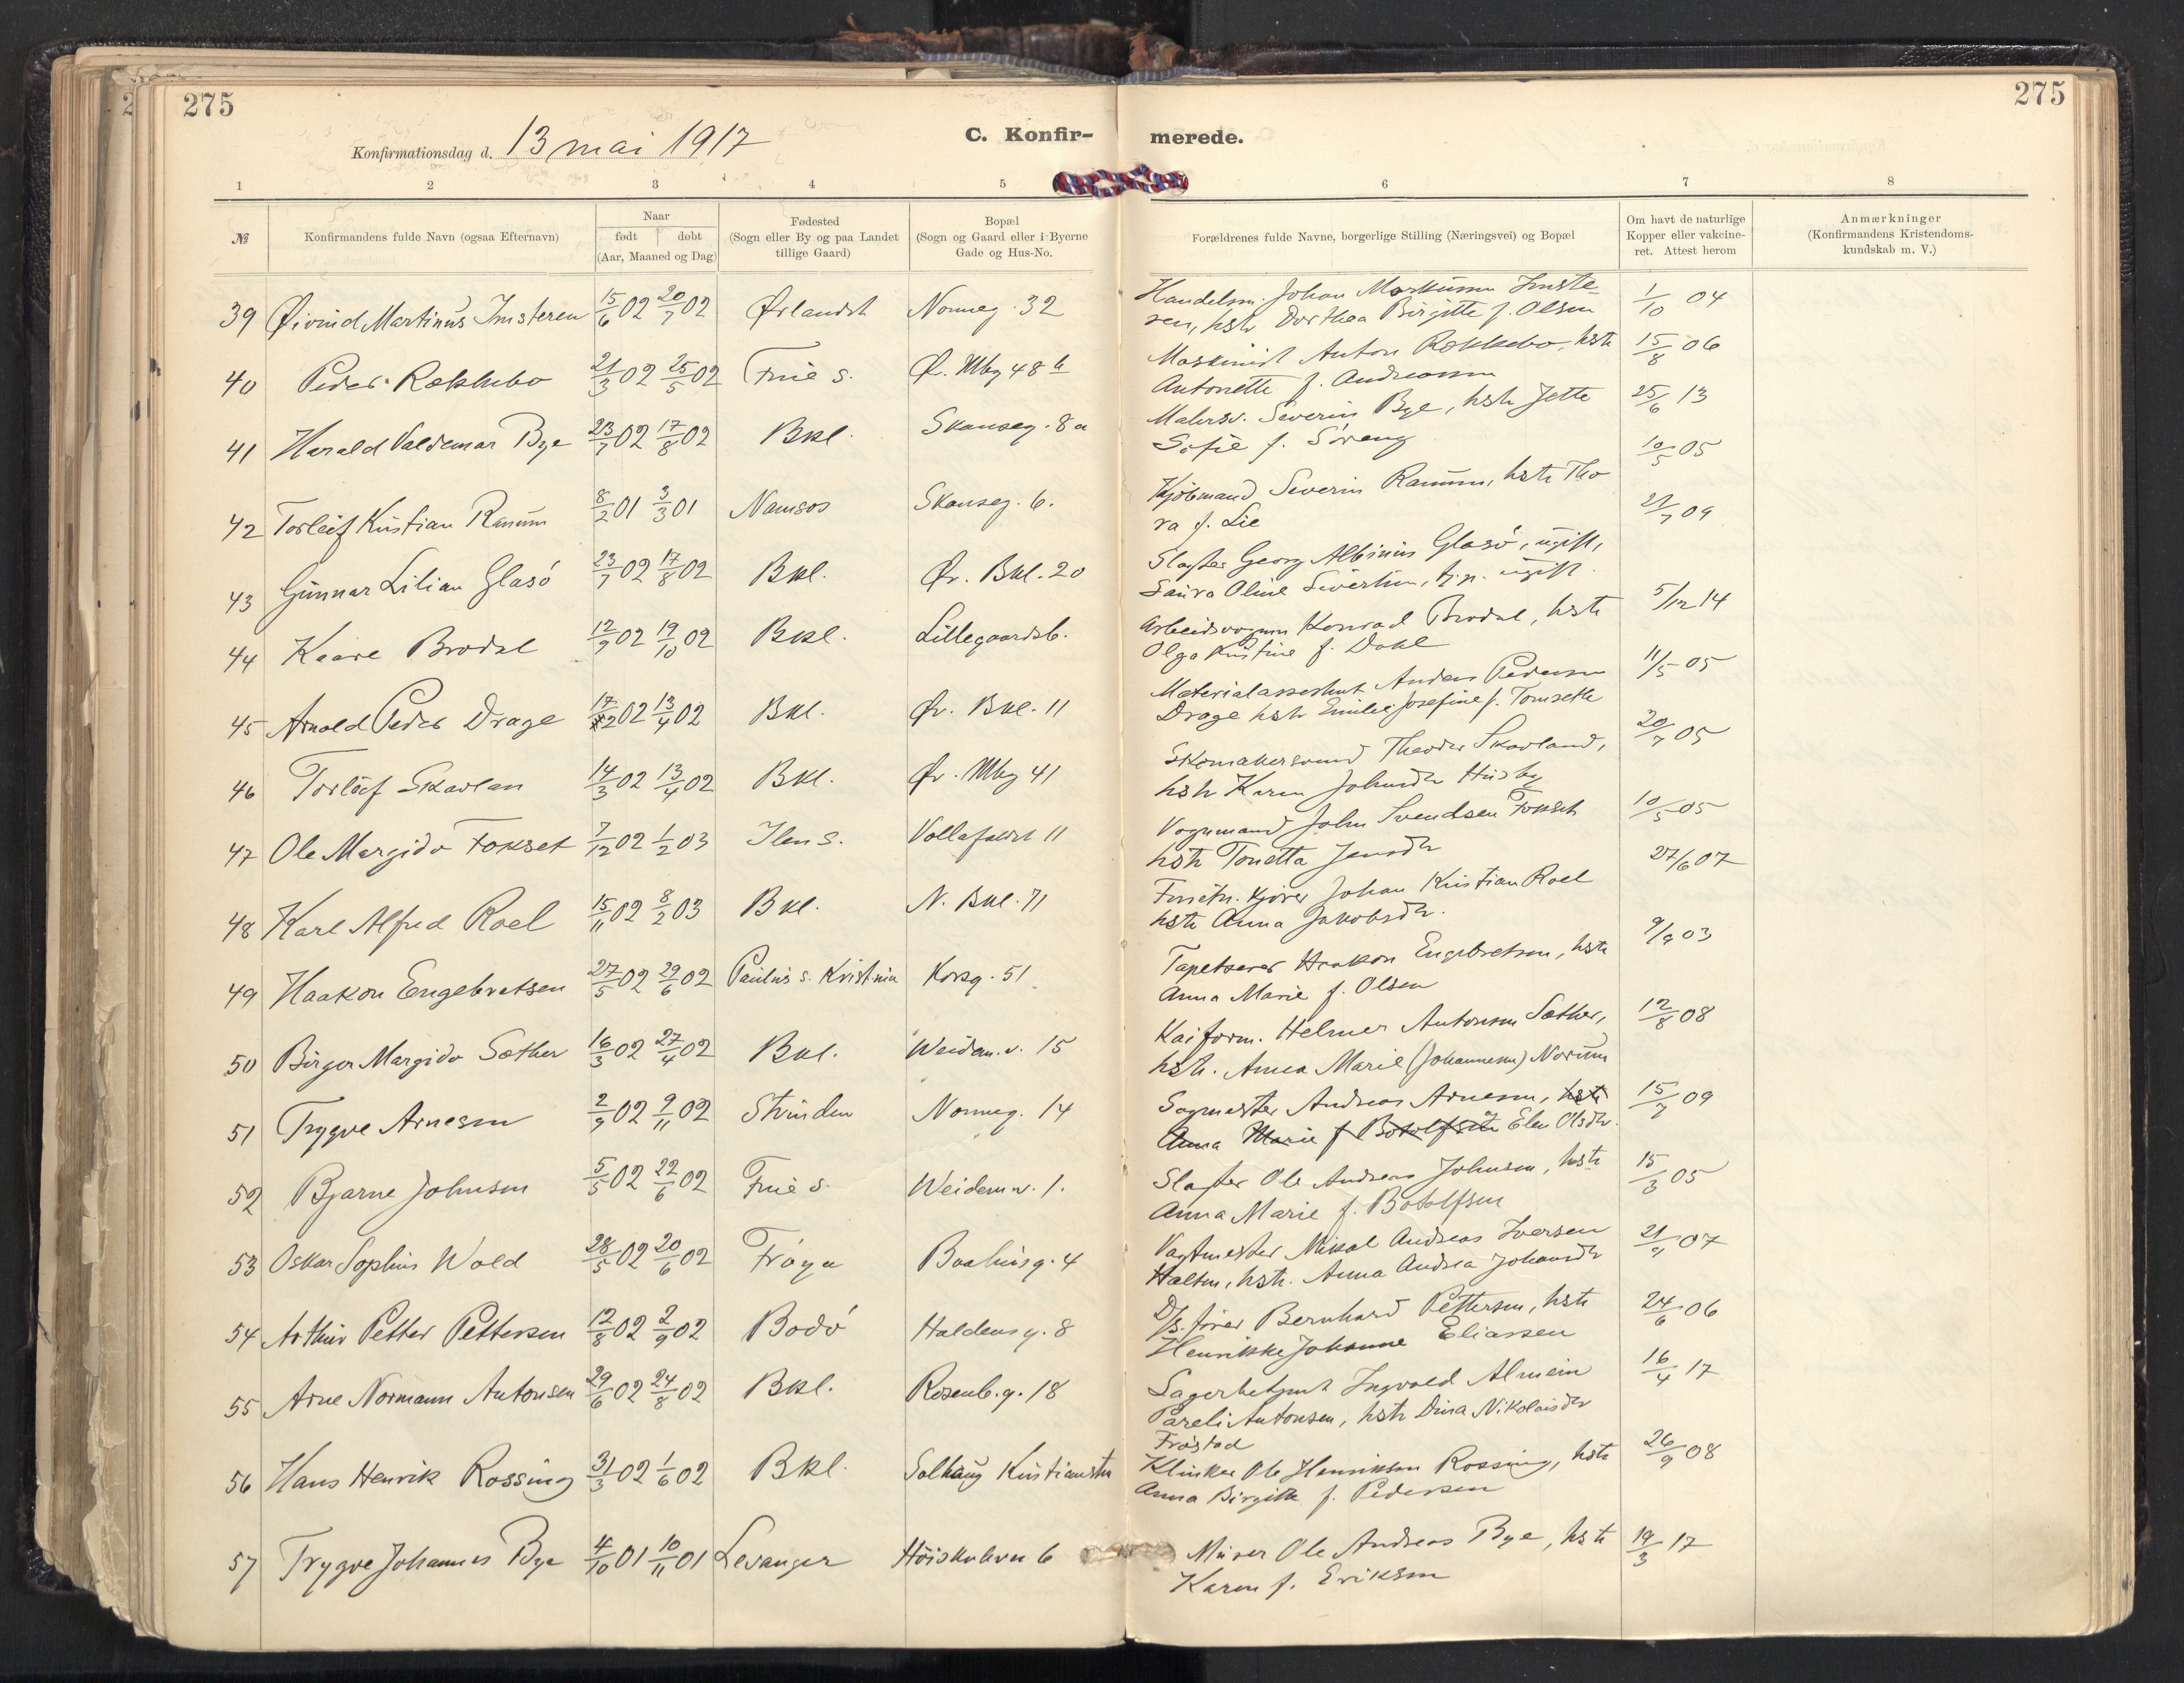 275
275
Konfirmationsdag d. 13 mai 1917
C. Konfir-
merede.
1 2 3 4 5 6 7 8
№
Konfirmandens fulde Navn (ogsaa Efternavn)
Naar
født døbt
(Aar, Maaned og Dag)
Fødested
(Sogn eller By og paa Landet
tillige Gaard)
Bopæl
(Sogn og Gaard eller i Byerne
Gade og Hus-No.
Forældrenes fulde Navne, borgerlige Stilling (Næringsvei) og Bopæl
Om havt de naturlige
Kopper eller vakcine-
ret. Attest herom
Anmærkninger
(Konfirmandens Kristendoms-
kundskab m. V.)
39 Øivind Martinus Imsteren 15/6 02 20/7 02 Ørlandet Nonneg. 32
Handelsm. Johan Markusen Imste-
ren, hstr Dorthea Birgitte f. Olsen 1/10 04
40 Peder Rækkebo 21/3 02 25/5 02 Frue s. Ø. Mbg 48 b
Maskinist Anton Rækkebo, hstr
Antonette f. Andreassen 15/8 06
41 Harald Valdemar Bye 23/7 02 17/8 02 Bkl. Skanseg. 8a
Malersv. Severin Bye, hstr Jette
Sofie f. Søreng 25/6 13
42 Torleif Kristian Ranum 8/2 01 3/3 01 Namsos Skanseg. 6.
Kjøbmand Severin Ranum, hstr Tho
ra f. Lie 10/5 05
43 Gunnar Lilian Glasö 23/7 02 17/8 02 Bkl. Øv. Bkl. 20
Slagter Georg Albinius Glasö, ugift,
Laura Oline Sivertsen, tj.p. ugift 21/7 09
44 Kaare Brodal 12/9 02 19/10 02 Bkl. Lillegaardsb.
Arbeidsvognm Konrad Brodal, hstr
Olga Kristine f. Dahl 5/12 14
45 Arnold Peder Drage 17/2 02 13/4 02 Bkl. Øv. Bkl. 11
Materialassistent Anders Pedersen
Drage hstr Emilie Josefine f. Tomseth 11/5 05
46 Torleif Skavlan 14/3 02 13/4 02 Bkl. Øv. Mbg 41
Skomakersvend Theodor Skavland,
hstr Karen Johnsdr Husby 20/7 05
47 Ole Margido Fokset 7/12 02 1/2 03 Ilen s. Vollafaldet 11
Vognmand John Svendsen Fokset
hstr Tonetta Jensdr 10/5 05
48 Karl Alfred Roel 15/11 02 8/2 03 Bkl. N. Bkl. 71
Forretn. kjører Johan Kristian Roel
hstr Anna Jakobsdr. 27/6 07
49 Haakon Engebretsen 27/5 02 29/6 02 Paulus s. Kristania Korsg. 51
Tapetserer Haakon Engebretsen, hstr
Anna Marie f. Olsen 9/9 03
50 Birger Margido Sæther 16/3 02 27/4 02 Bkl. Weidem. v. 15
Kaiform. Helmer Antonsen Sæther,
hstr. Anna Marie (Johannesen) Norum 12/8 08
51 Trygve Arnesen 2/9 02 9/11 02 Strinden Nonneg. 14
Sagmester Andreas Arnesen, hstr
Anna Marie f Bottolfsen Elen Olsdr. 15/7 09
52 Bjarne Johnsen 5/5 02 22/6 02 Frue s. Weidem v. 1.
Slagter Ole Andreas Johnsen, hstr
Anna Marie f. Botolfsen 15/3 05
53 Oskar Sophus Wold 28/5 02 20/6 02 Fröya Baahusg. 4
Vagtmester Mikal Andreas Iversen
Halten, hstr. Anna Andrea Johansdr 21/9 07
54 Arthur Petter Pettersen 12/8 02 2/9 02 Bodö Haldensg. 8
D/s. fører Bernhard Pettersen, hstr
Henrikke Johanne Eliassen 24/6 06
55 Arne Normann Antonsen 29/6 02 24/8 02 Bkl. Rosenb. g. 18
Lagerbetjent Ingvald Almein
Pareli Antonsen, hstr Dina Nikolaisdr
Fröstad 16/4 17
56 Hans Henrik Rossing 31/3 02 1/6 02 Bkl. Solhaug Kristiansten
Klinker Ole Henriksen Rossing, hstr
Anna Birgitte f. Pedersen 26/9 08
57 Trygve Johannes Bye 4/10 01 10/11 01 Levanger Höiskolevn 6
Murer Ole Andreas Bye, hstr
Karen f. Eriksen 19/3 17